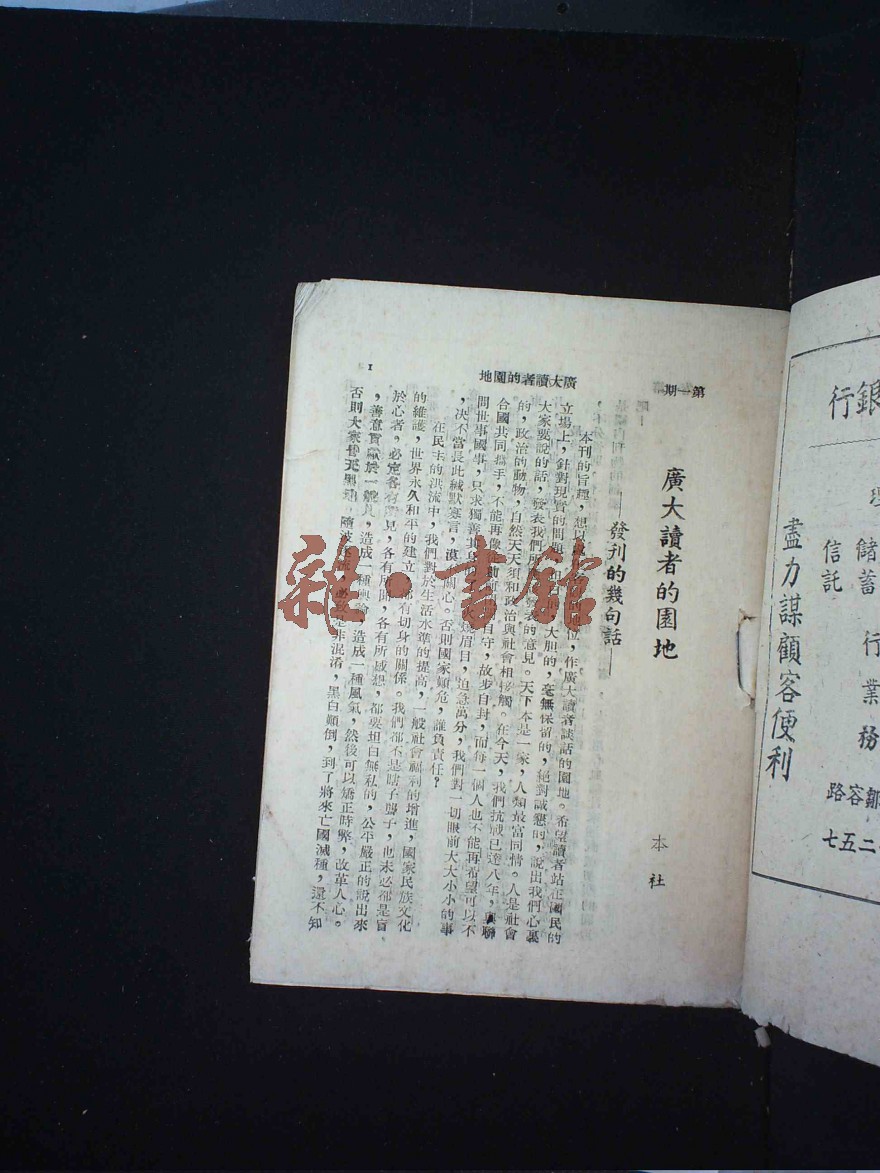 第一期
廣大讀者的園地
1
廣大讀者的園地
——發刊的幾句話——
本社
本刊的旨趣,想以
立場上,針對現實的問題
大家要說的話,發表我們
的,政治的動物,自然天天須和政治與社會相接觸。在今天,我們抗戰已達八年,與聯
合國共同攜手,不能再像
問世事國事,只求獨善其身
,決不當長此緘默寡言,漠不關心。否則國家傾危,誰負責任?
在民主的洪流中,我們對於生活水準的提高,一般社會福利的增進,國家民族文化
的維護,世界永久和平的建立,都有切身的關係。我們都不是瞎子聾子,也未必都是盲
於心者,必定各有所見,各有所聞,各有所感想,都要坦白無私的,公平嚴正的說出來
,善意貢獻於一般人,造成一種輿論,造成一種風氣,然後可以矯正時弊,改革人心。
否則大家
是非混淆,黑白顛倒,到了將來亡國滅種,還不知
位,作廣大讀者談話的園地。希望讀者站在國民的
大胆的,毫無保留的,絕對誠懇的,說出我們心裏
發表的意見。天下本是一家,人類最富同情。人是社會
自守,故步自封,而每一個人也不能再希望可以不
燒眉目,迫急萬分,我們對一切眼前大大小小的事
雜·書館
銀行
儲蓄
信託
行業務
盡力謀顧客便利
鄒容路
二五七